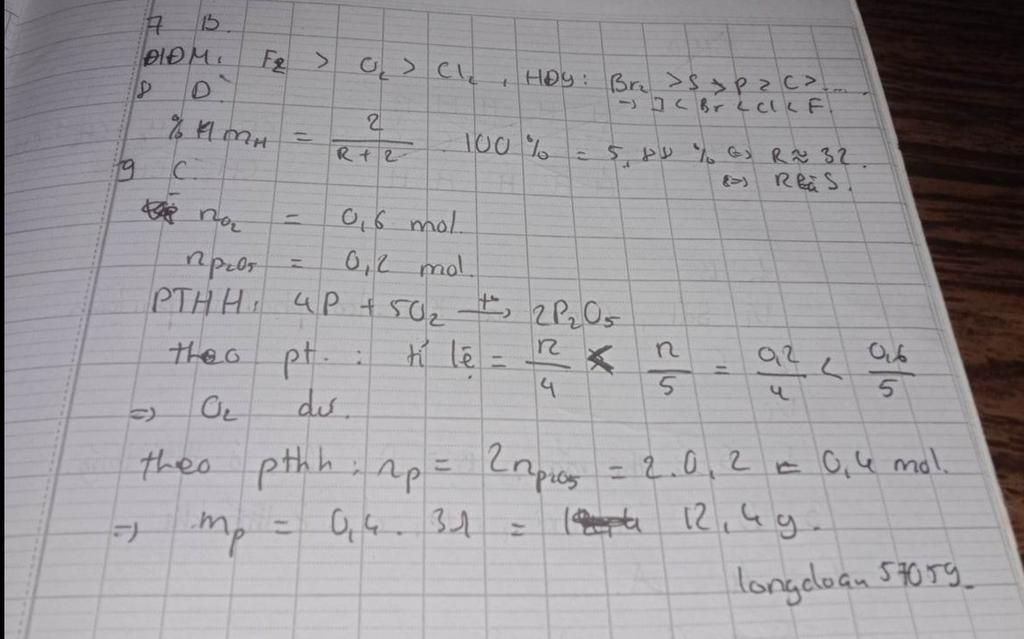 7 B.
ĐIĐM: F2 > O2 > Cl2, HĐY: Br2 > S > P > C > ....
8 D
→ I < Br < Cl < F
% mH = 2/(R+2) . 100% = 5,88 % ⇔ R ≈ 32.
⇔ R là S.
9 C.
nO2 = 0,6 mol.
nP2O5 = 0,2 mol.
PTHH: 4P + 5O2 t°→ 2P2O5
theo pt : tỉ lệ = n/4 < n/5 = 0,2/4 < 0,6/5
=> O2 dư.
theo pthh : nP = 2nP2O5 = 2.0,2 = 0,4 mol.
=> mP = 0,4. 31 = 12,4g.
longdoan 57059_